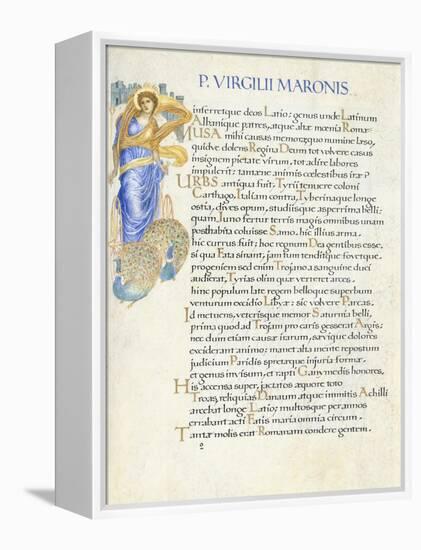 P. VIRGILII MARONIS
inferretque deos Latio: genus unde Latinum
Albanique patres, atque altæ mœnia Romæ
MUSA mihi causas memora; quo numine læso,
quidve dolens Regina Deum tot volvere casus
insignem pietate virum, tot adire labores
impulerit: tantæne animis cœlestibus iræ?
URBS antiqua fuit, Tyrii tenuere coloni
Carthago, Italiam contra, Tyberinaque longe
ostia, dives opum, studiisque asperrima belli:
quam Juno fertur terris magis omnibus unam
posthabita coluisse Samo. hic illius arma.
hic currus fuit: hoc regnum Dea gentibus esse.
si qua Fata sinant, jam tum tenditque fovetque.
progeniem sed enim Trojano a sanguine duci
audierat, Tyrias olim quæ verteret arces.
hinc populum late regem belloque superbum
venturum excidio Libyæ: sic volvere Parcas.
Id metuens, veterisque memor Saturnia belli,
prima quod ad Trojam pro caris gesserat Argis:
nec dum etiam causæ irarum, sævique dolores
exciderant animo: manet alta mente repostum
judicium Paridis spretæque injuria formæ.
et genus invisum, et rapti Ganymedis honores,
His accensa super, jactatos æquore toto
Troas, reliquias Danaum, atque immitis Achilli
arcebat longe Latio; multosque per annos
errabant acti Fatis maria omnia circum.
Tantæ molis erat Romanam condere gentem.
2